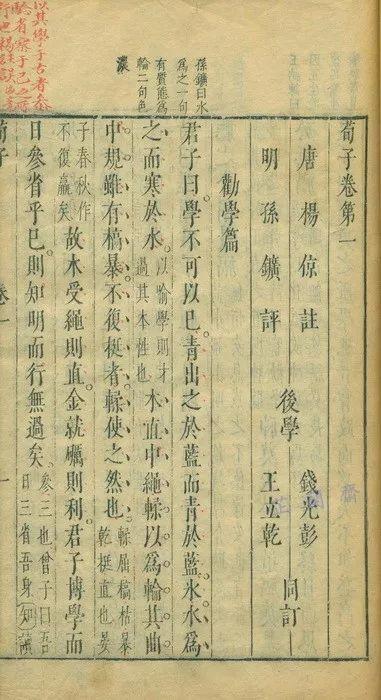 荀子卷第一
唐楊倞註
明孫鑛評
後學
錢光彭
王立乾
同訂
勸學篇
孫鑛曰水
為之一句
有質態為
輪二句色
濃
君子曰學不可以已青出之於藍而青於藍氷水為
之而寒於水以喻學則才過其本性也木直中繩輮以為輪其曲
中規雖有槁暴不復挺者輮使之然也輮屈槁枯暴乾挺直也晏
子春秋作不復贏矣故木受繩則直金就礪則利君子博學而
日參省乎已則知明而行無過矣參三也曾子曰吾日三省吾身知讀
荀子
卷一
一
以其學于古者參
驗省察于己之所
行也楊